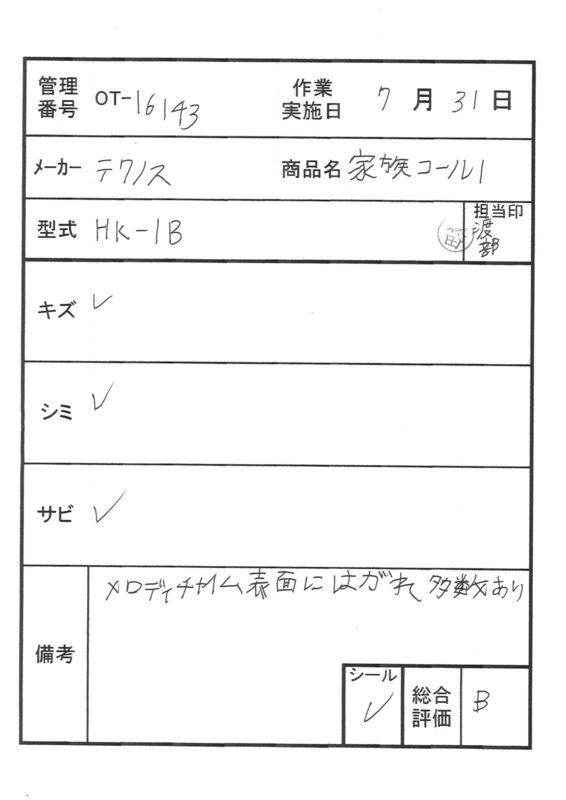 管理番号 OT-16143 作業実施日 7月31日
メーカー テクノス 商品名 家族コール1
型式 HK-1B 担当印 渡部
キズ ✓
シミ ✓
サビ ✓
備考 メロディチャイム表面にはがれ多数あり
シール ✓ 総合評価 B